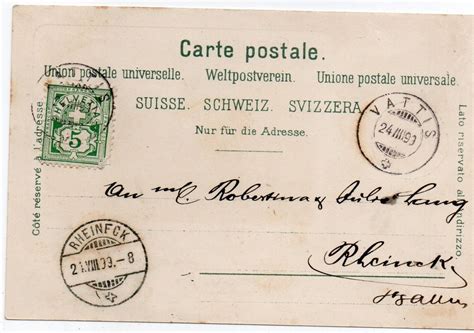 Carte postale.
Union postale universelle. Weltpostverein. Unione postale universale.
SUISSE. SCHWEIZ. SVIZZERA
Nur für die Adresse.
Côté réservé à l'adresse.
Lato riservato all'indirizzo.
HELVETIA
5
VÄTTIS
24 VIII 99
RHEINECK
24.VIII.99.-8
An M. Robertina &
Rheineck